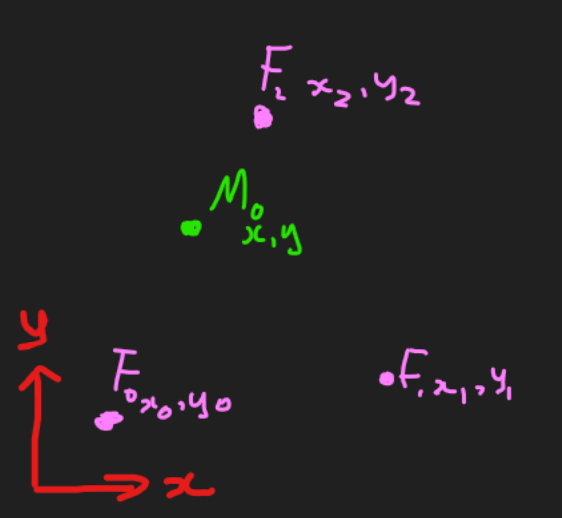 F₂ x₂, y₂
M₀
x, y
y
F₀ x₀, y₀
F₁ x₁, y₁
x